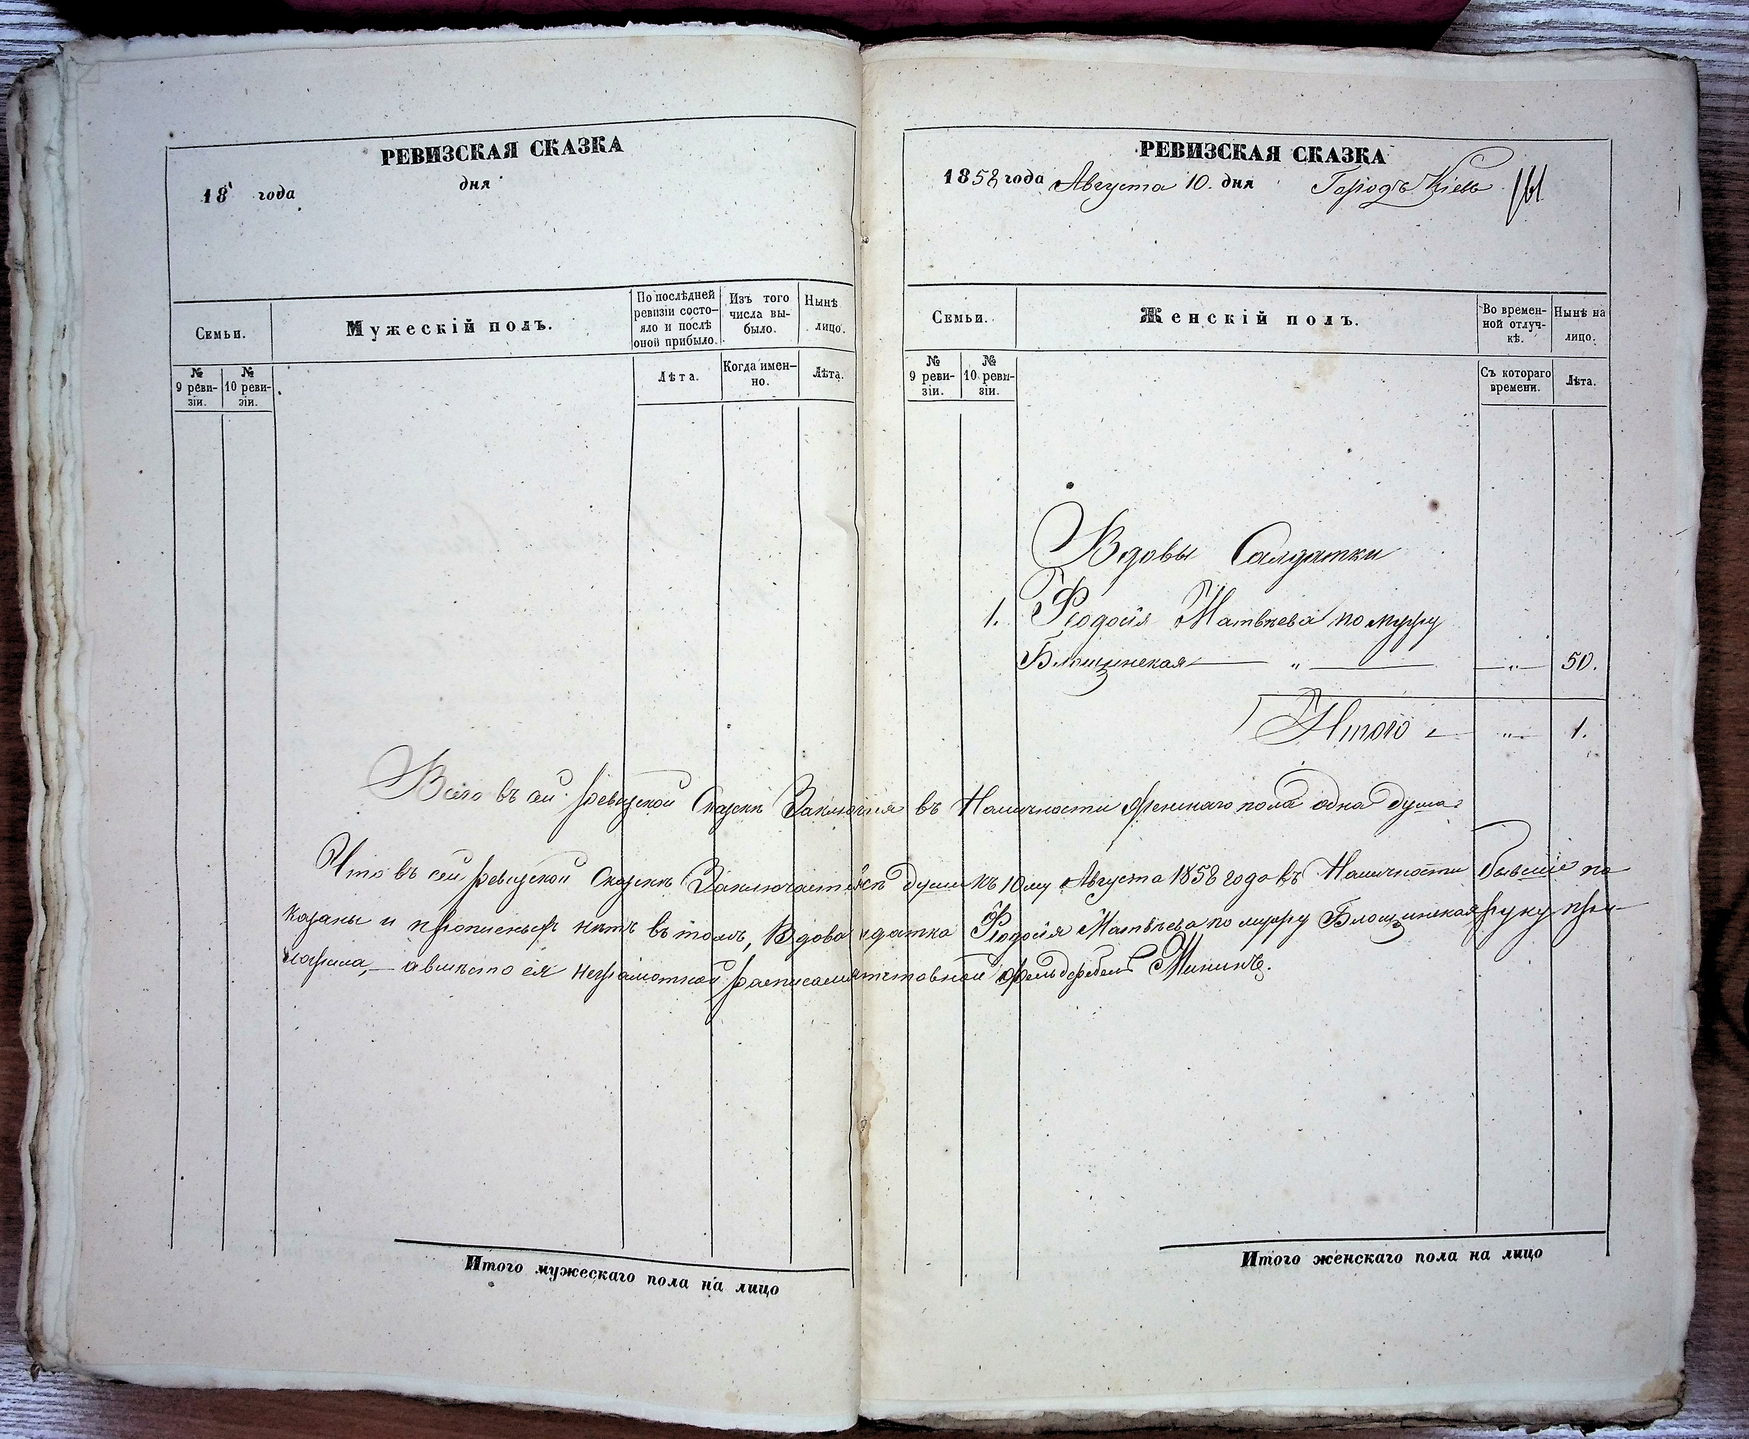 РЕВИЗСКАЯ СКАЗКА
18 года
дня
Семьи.
Мужескій полъ.
По послѣдней ревизіи состо-
яло и послѣ оной прибыло.
Изъ того числа вы-
было.
Нынѣ лицо.
№ 9 реви-
зіи.
№ 10 реви-
зіи.
Лѣта.
Когда имен-
но.
Лѣта.
РЕВИЗСКАЯ СКАЗКА
1858 года Августа 10. дня Городъ Кіевъ
161
Семьи.
Женскій полъ.
Во времен-
ной отлуч-
кѣ.
Нынѣ на лицо.
№ 9 реви-
зіи.
№ 10 реви-
зіи.
Съ котораго времени.
Лѣта.
Вдовы Салдатки
1. Феодосія Матвѣева по мужу
Блощинская — " — — " — 50.
Итого — " — 1.
Всего въ сей ревизской Сказкѣ въ Наличности женскаго пола одна душа
Что въ сей ревизской Сказкѣ души къ 10му Августа 1858 года въ Наличности бывшіе по
казаны и прописныхъ нѣтъ въ томъ, Вдова Феодосія Матвѣева по мужу Блощинская руку при-
ложила, — а вмѣсто ея неграмотной фельдфебель Мининъ.
Итого мужескаго пола на лицо
Итого женскаго пола на лицо